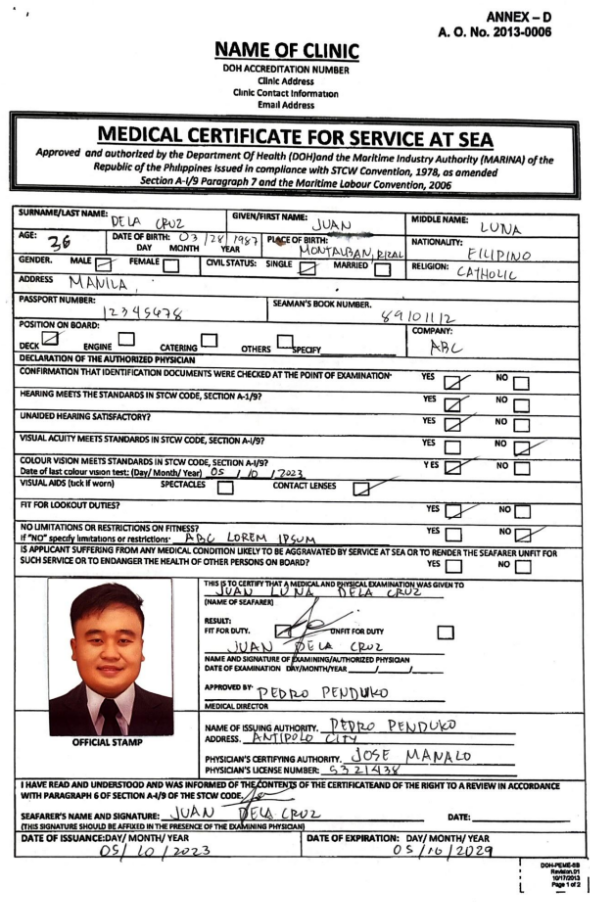 ANNEX – D
A. O. No. 2013-0006
NAME OF CLINIC
DOH ACCREDITATION NUMBER
Clinic Address
Clinic Contact Information
Email Address
MEDICAL CERTIFICATE FOR SERVICE AT SEA
Approved and authorized by the Department Of Health (DOH)and the Maritime Industry Authority (MARINA) of the
Republic of the Philippines issued in compliance with STCW Convention, 1978, as amended
Section A-I/9 Paragraph 7 and the Maritime Labour Convention, 2006
SURNAME/LAST NAME: DELA CRUZ GIVEN/FIRST NAME: JUAN MIDDLE NAME: LUNA
AGE: 36 DATE OF BIRTH: 03 / 28 / 1987 PLACE OF BIRTH: MONTALBAN, RIZAL NATIONALITY: FILIPINO
DAY MONTH YEAR
GENDER. MALE FEMALE CIVIL STATUS: SINGLE MARRIED RELIGION: CATHOLIC
ADDRESS MANILA,
PASSPORT NUMBER: 12345678 SEAMAN'S BOOK NUMBER. 89101112
POSITION ON BOARD: COMPANY: ABC
DECK ENGINE CATERING OTHERS SPECIFY
DECLARATION OF THE AUTHORIZED PHYSICIAN
CONFIRMATION THAT IDENTIFICATION DOCUMENTS WERE CHECKED AT THE POINT OF EXAMINATION- YES NO
HEARING MEETS THE STANDARDS IN STCW CODE, SECTION A-1/9? YES NO
UNAIDED HEARING SATISFACTORY? YES NO
VISUAL ACUITY MEETS STANDARDS IN STCW CODE, SECTION A-I/9? YES NO
COLOUR VISION MEETS STANDARDS IN STCW CODE, SECTION A-I/9? YES NO
Date of last colour vision test: (Day/ Month/ Year) 05 / 10 / 2023
VISUAL AIDS (tick if worn) SPECTACLES CONTACT LENSES
FIT FOR LOOKOUT DUTIES? YES NO
NO LIMITATIONS OR RESTRICTIONS ON FITNESS? YES NO
If "NO" specify limitations or restrictions- ABC LOREM IPSUM
IS APPLICANT SUFFERING FROM ANY MEDICAL CONDITION LIKELY TO BE AGGRAVATED BY SERVICE AT SEA OR TO RENDER THE SEAFARER UNFIT FOR
SUCH SERVICE OR TO ENDANGER THE HEALTH OF OTHER PERSONS ON BOARD? YES NO
THIS IS TO CERTIFY THAT A MEDICAL AND PHYSICAL EXAMINATION WAS GIVEN TO
JUAN LUNA DELA CRUZ
(NAME OF SEAFARER)
RESULT:
FIT FOR DUTY. UNFIT FOR DUTY
JUAN DELA CRUZ
NAME AND SIGNATURE OF EXAMINING/AUTHORIZED PHYSICIAN
DATE OF EXAMINATION DAY/MONTH/YEAR / /
APPROVED BY PEDRO PENDUKO
MEDICAL DIRECTOR
OFFICIAL STAMP
NAME OF ISSUING AUTHORITY. PEDRO PENDUKO
ADDRESS. ANTIPOLO CITY
PHYSICIAN'S CERTIFYING AUTHORITY. JOSE MANALO
PHYSICIAN'S LICENSE NUMBER: 5321438
I HAVE READ AND UNDERSTOOD AND WAS INFORMED OF THE CONTENTS OF THE CERTIFICATEAND OF THE RIGHT TO A REVIEW IN ACCORDANCE
WITH PARAGRAPH 6 OF SECTION A-I/9 OF THE STCW CODE.
SEAFARER'S NAME AND SIGNATURE: JUAN DELA CRUZ DATE:
(THIS SIGNATURE SHOULD BE AFFIXED IN THE PRESENCE OF THE EXAMINING PHYSICIAN)
DATE OF ISSUANCE:DAY/ MONTH/ YEAR DATE OF EXPIRATION: DAY/ MONTH/ YEAR
05/ 10 / 2023 05 / 10 / 2029
DOH-PEME-SB
Revision.01
10/17/2013
Page 1 of 2